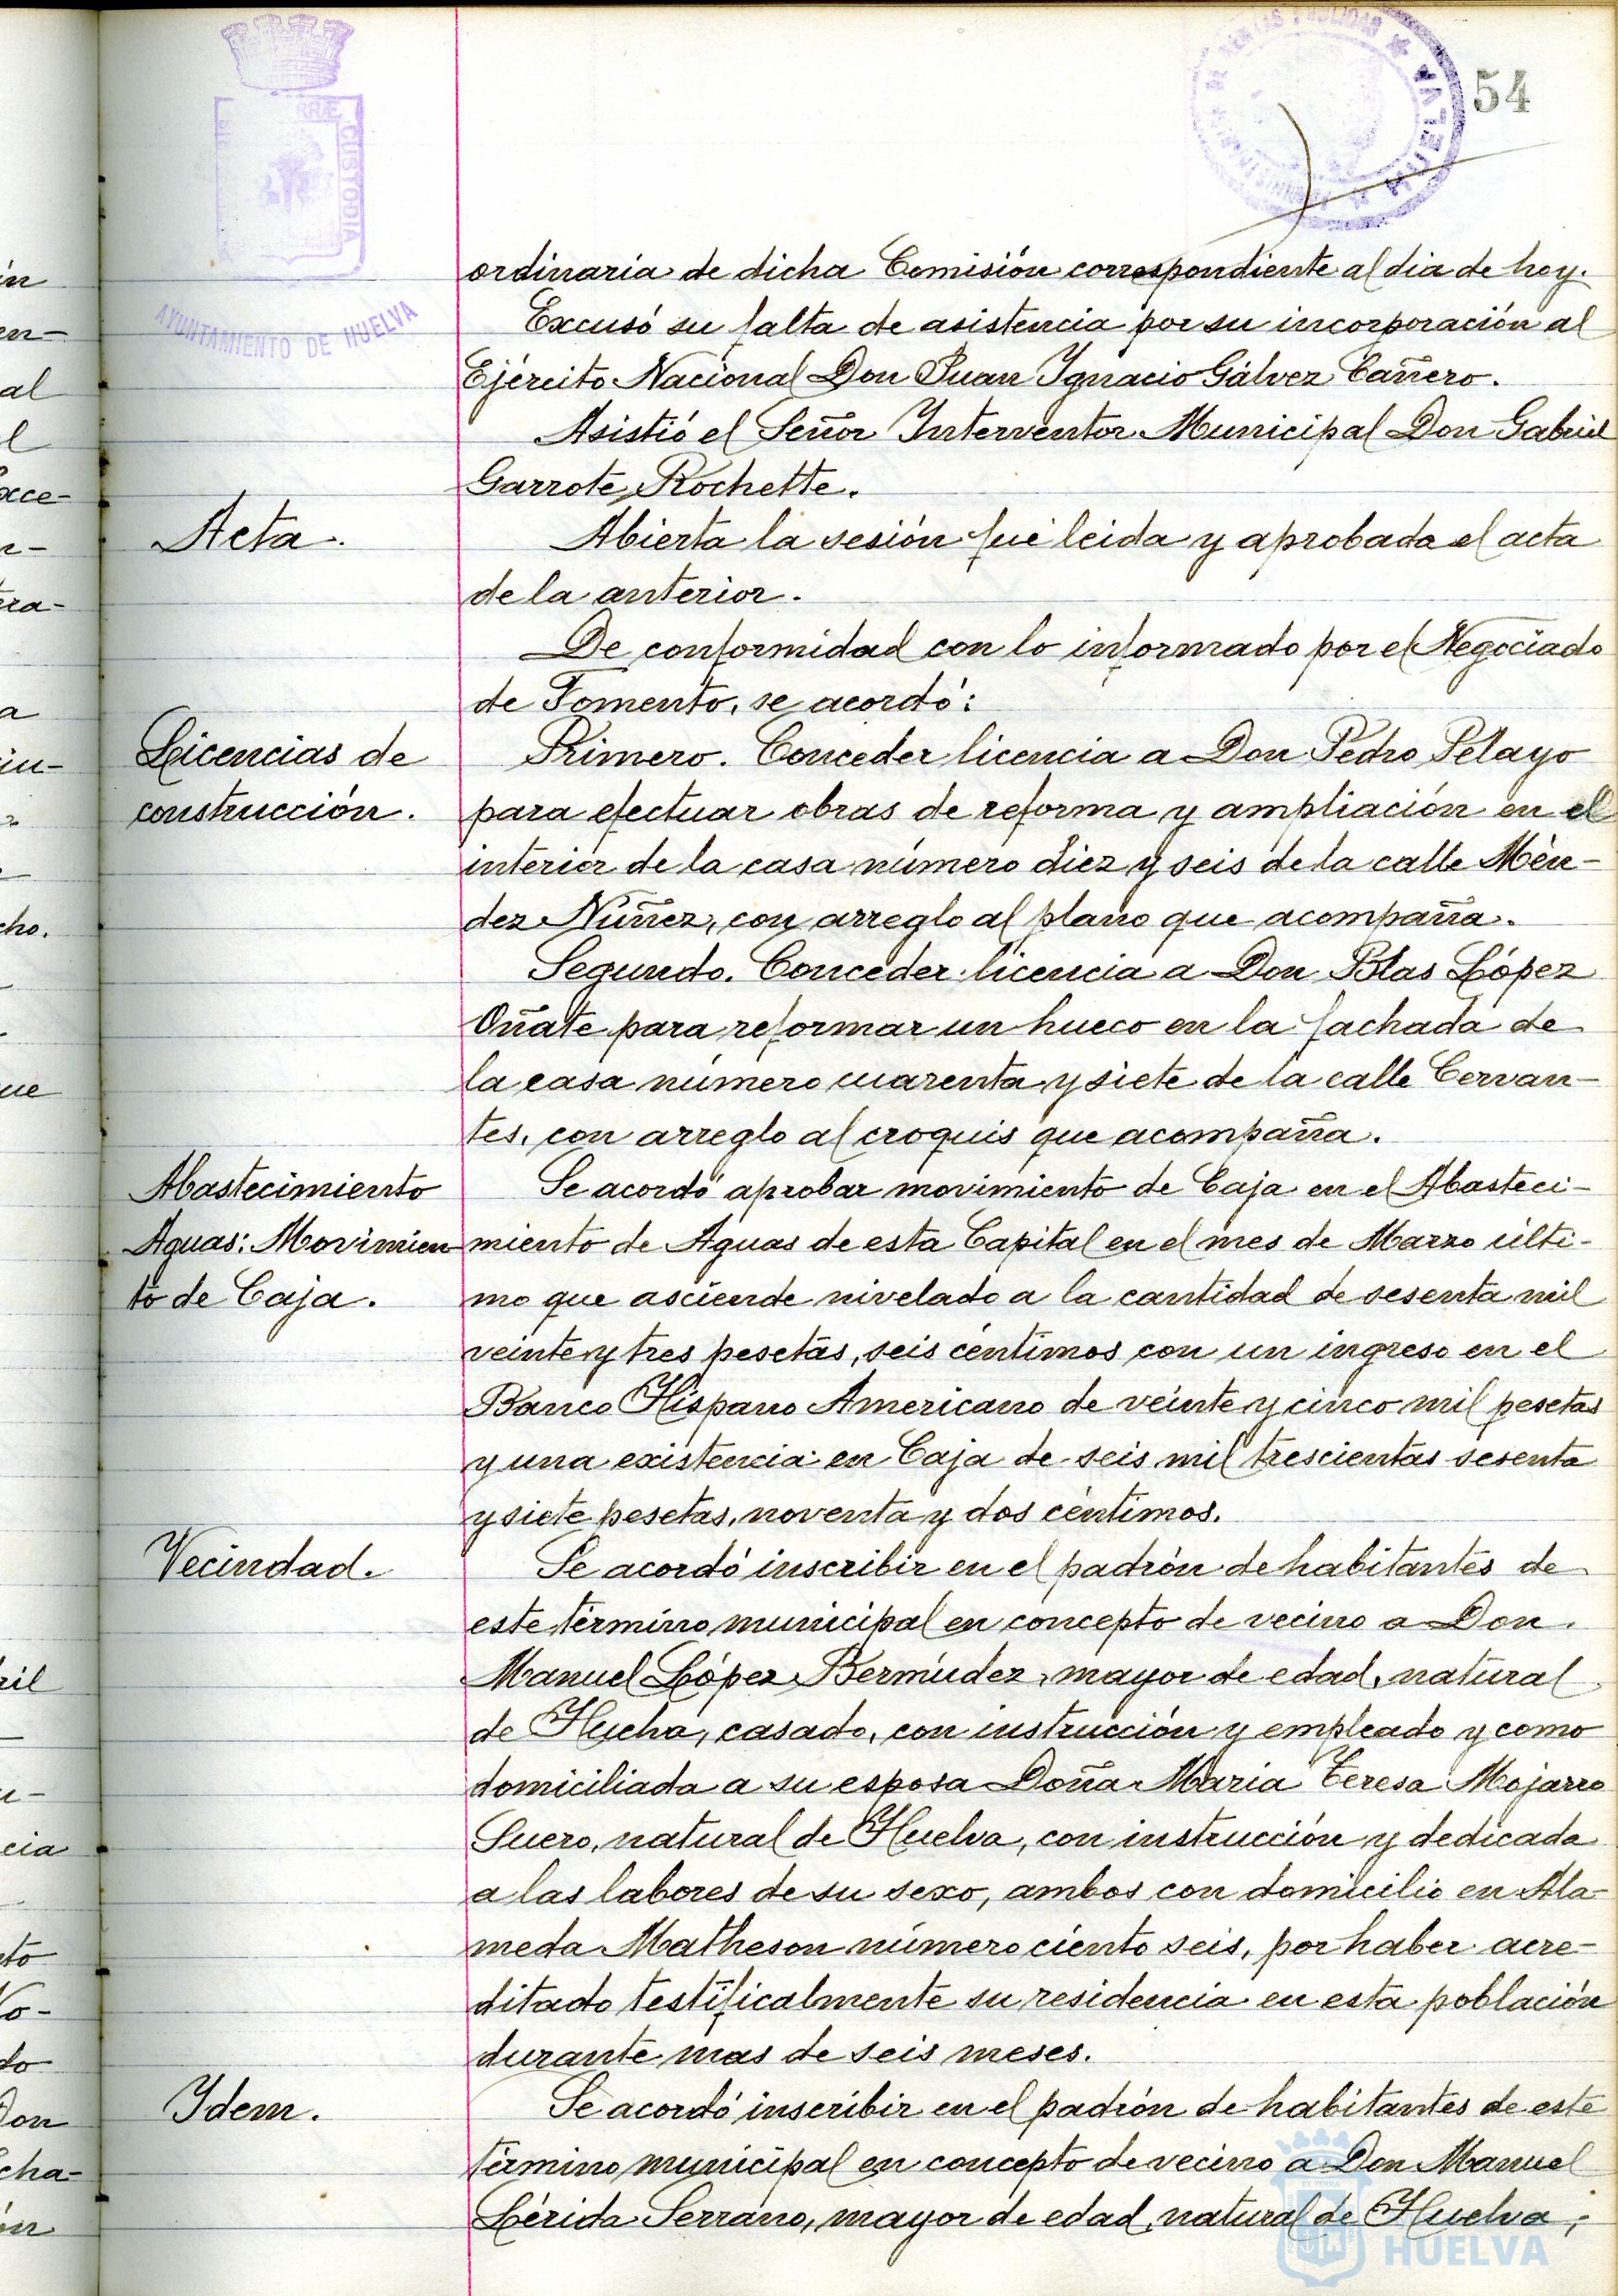 54
PORTUS MARIS ET TERRÆ CUSTODIA
AYUNTAMIENTO DE HUELVA
HUELVA
ordinaria de dicha Comisión correspondiente al dia de hoy.
Excusó su falta de asistencia por su incorporación al
Ejército Nacional Don Juan Ygnacio Gálvez Cañero.
Asistió el Señor Ynterventor Municipal Don Gabriel
Garrote Rochette.
Acta.
Abierta la sesión fué leida y aprobada el acta
de la anterior.
De conformidad con lo informado por el Negociado
de Fomento, se acordó:
Licencias de
construcción.
Primero. Conceder licencia a Don Pedro Pelayo
para efectuar obras de reforma y ampliación en el
interior de la casa número diez y seis de la calle Mén-
dez Núñez, con arreglo al plano que acompaña.
Segundo. Conceder licencia a Don Blas López
Oñate para reformar un hueco en la fachada de
la casa número cuarenta y siete de la calle Cervan-
tes, con arreglo al croquis que acompaña.
Abastecimiento
Aguas: Movimien
to de Caja.
Se acordó aprobar movimiento de Caja en el Abasteci-
miento de Aguas de esta Capital en el mes de Marzo últi-
mo que asciende nivelado a la cantidad de sesenta mil
veinte y tres pesetas, seis céntimos con un ingreso en el
Banco Hispano Americano de veinte y cinco mil pesetas
y una existencia en Caja de seis mil trescientas sesenta
y siete pesetas, noventa y dos céntimos.
Vecindad.
Se acordó inscribir en el padrón de habitantes de
este término municipal en concepto de vecino a Don
Manuel López Bermúdez, mayor de edad, natural
de Huelva, casado, con instrucción y empleado y como
domiciliada a su esposa Doña Maria Teresa Mojarro
Suero, natural de Huelva, con instrucción y dedicada
a las labores de su sexo, ambos con domicilio en Ala-
meda Matheson número ciento seis, por haber acre-
ditado testificalmente su residencia en esta población
durante mas de seis meses.
Ydem.
Se acordó inscribir en el padrón de habitantes de este
término municipal en concepto de vecino a Don Manuel
Lérida Serrano, mayor de edad, natural de Huelva,
HUELVA